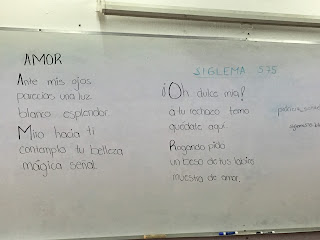 AMOR
Ante mis ojos
parecias una luz
blanco esplendor
Miro hacia ti
contemplo tu belleza
mágica señal
SIGLEMA 575
¡Oh dulce mía!
a tu rechazo temo
quédate aquí
Rogando pido
un beso de tus labios
muestra de amor.